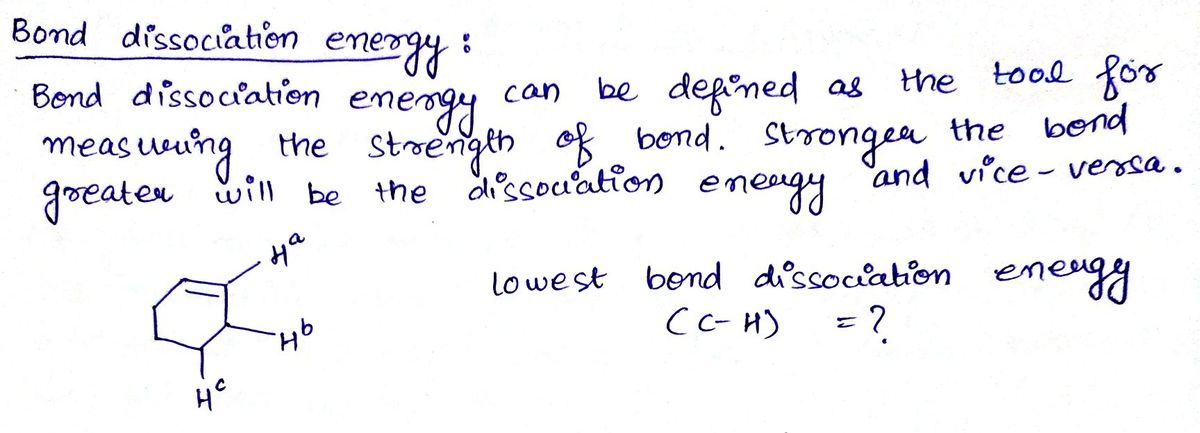 Bond dissociation energy :
Bond dissociation energy can be defined as the tool for
measuring the strength of bond. Stronger the bond
greater will be the dissociation energy and vice-versa.
Hᵃ
lowest bond dissociation energy
Hᵇ
(C-H) = ?
Hᶜ